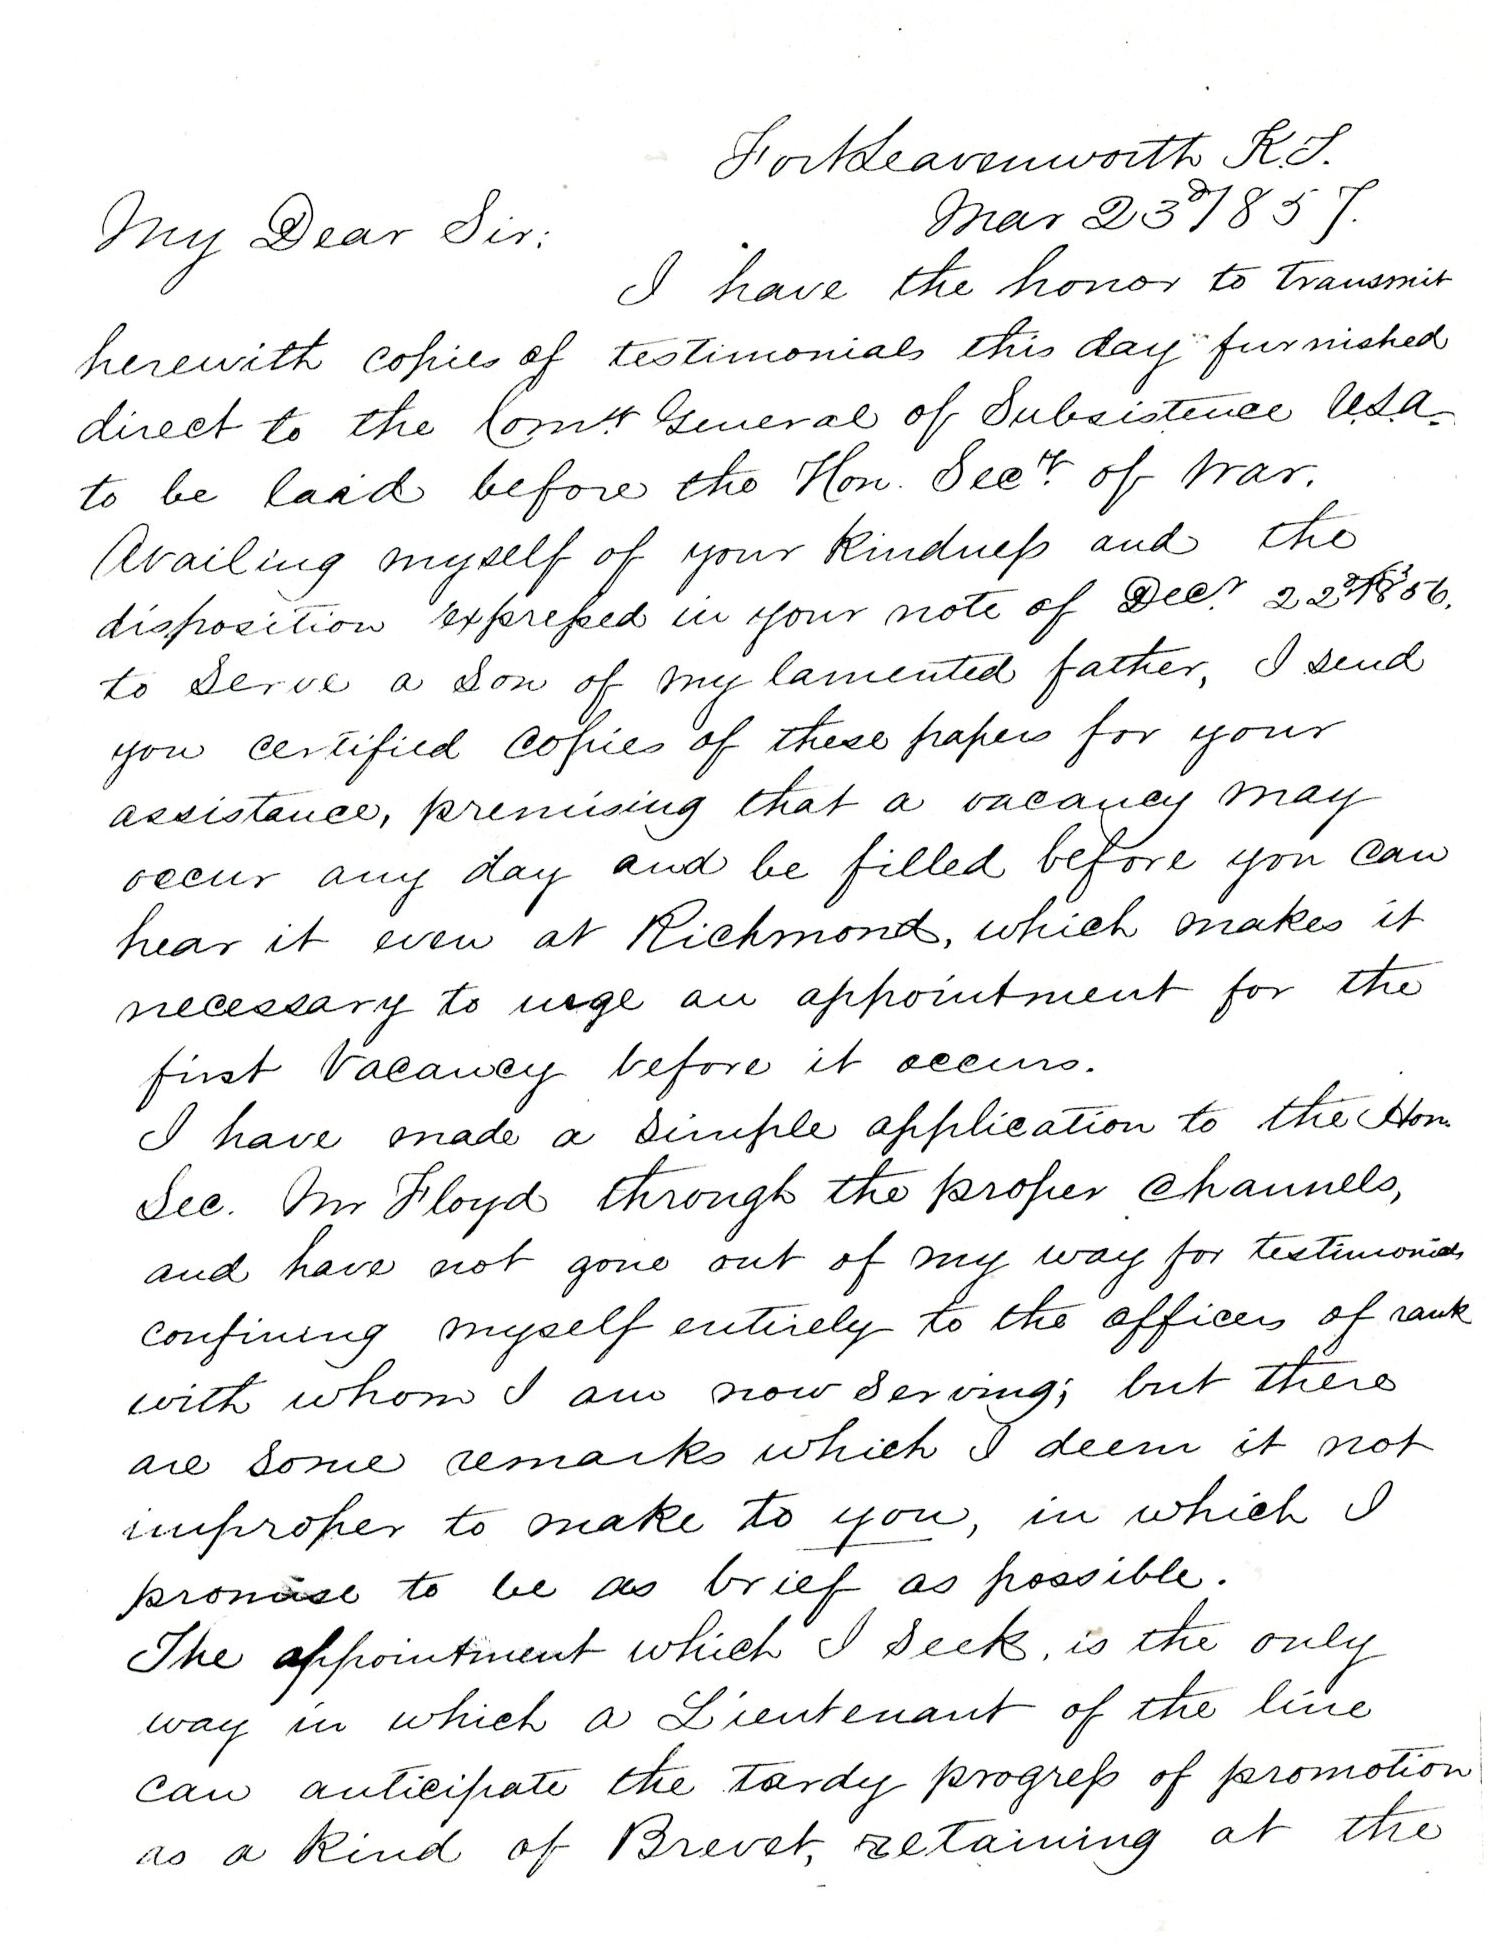 Fort Leavenworth K.T.
Mar 23d/857.
My Dear Sir:
I have the honor to transmit
herewith copies of testimonials this day furnished
direct to the Comy General of Subsistence U.S.A.
to be laid before the Hon. Secy. of War.
Availing myself of your kindness and the
disposition expressed in your note of Decr. 22d/856.
to serve a son of my lamented father, I send
you certified copies of these papers for your
assistance, premising that a vacancy may
occur any day and be filled before you can
hear it even at Richmond, which makes it
necessary to urge an appointment for the
first Vacancy before it occurs.
I have made a simple application to the Hon.
Sec. Mr Floyd through the proper channels,
and have not gone out of my way for testimonials
confining myself entirely to the officers of rank
with whom I am now serving; but there
are some remarks which I deem it not
improper to make to you, in which I
promise to be as brief as possible.
The appointment which I seek, is the only
way in which a Lieutenant of the line
can anticipate the tardy progress of promotion
as a kind of Brevet, retaining at the